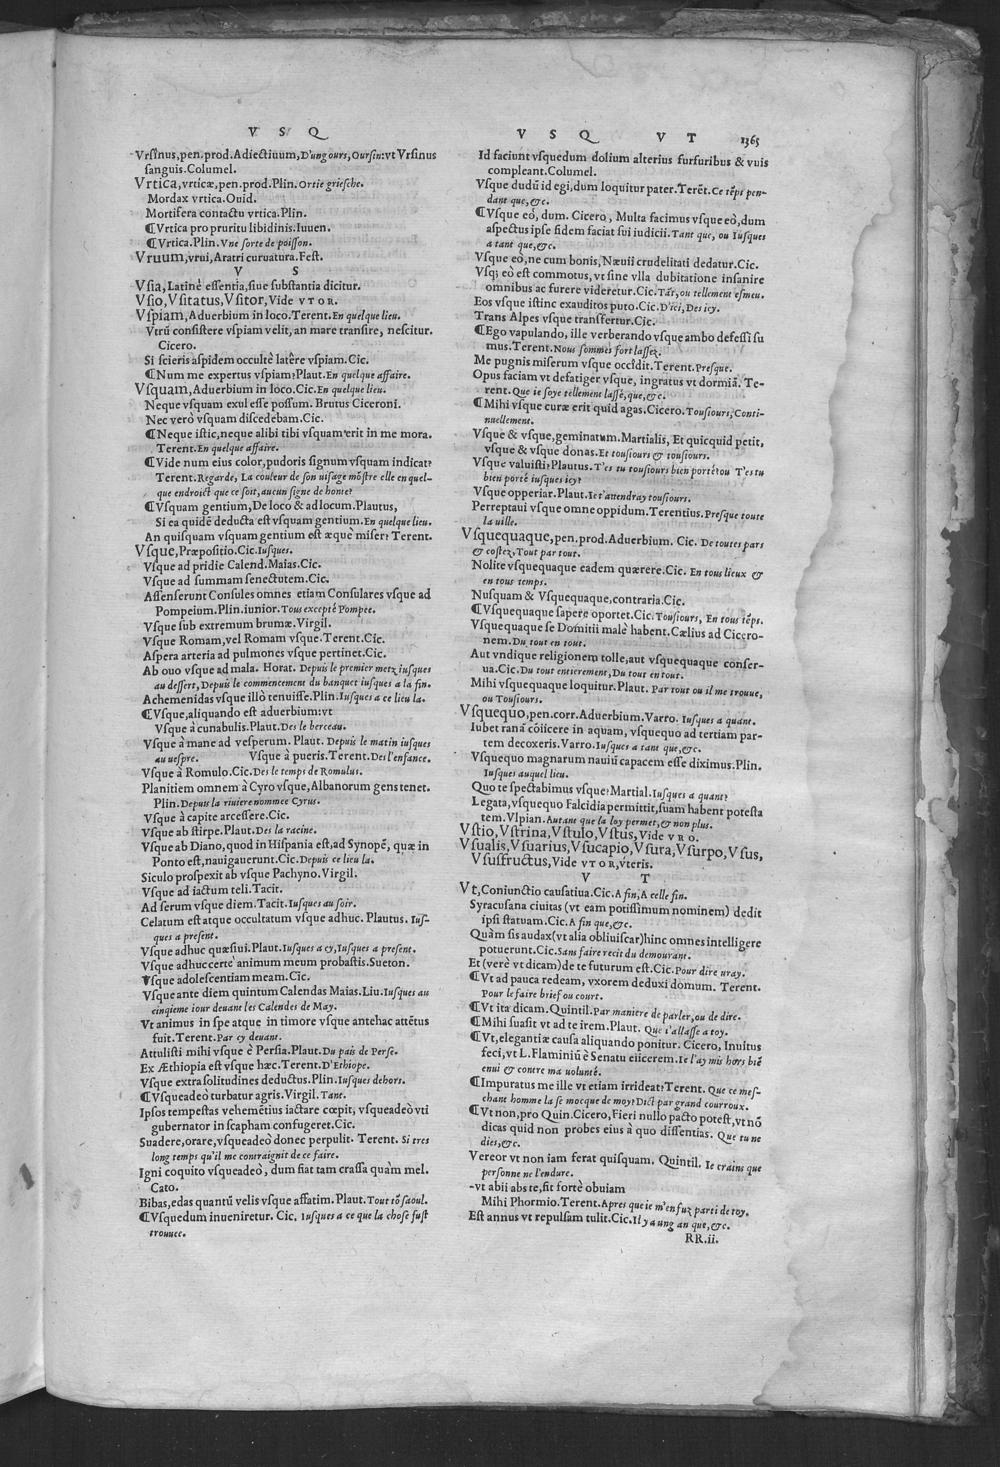 V S Q
Vrsinus,pen.prod.Adiectiuum,D'ung ours,Oursin:vt Vrsinus
sanguis.Columel.
Vrtica,vrticæ,pen.prod.Plin.Ortie griesche.
Mordax vrtica.Ouid.
Mortifera contactu vrtica.Plin.
¶Vrtica pro pruritu libidinis.Iuuen.
¶Vrtica.Plin.Vne sorte de poisson.
Vruum,vrui,Aratri curuatura.Fest.
V S
Vsia,Latinè essentia,siue substantia dicitur.
Vsio,Vsitatus,Vsitor,Vide VTOR.
Vspiam,Aduerbium in loco.Terent.En quelque lieu.
Vtrū consistere vspiam velit,an mare transire, nescitur.
Cicero.
Si scieris aspidem occultè latêre vspiam.Cic.
¶Num me expertus vspiam?Plaut.En quelque affaire.
Vsquam,Aduerbium in loco.Cic.En quelque lieu.
Neque vsquam exul esse possum. Brutus Ciceroni.
Nec verò vsquam discedebam.Cic.
¶Neque istic,neque alibi tibi vsquam erit in me mora.
Terent.En quelque affaire.
¶Vide num eius color,pudoris signum vsquam indicat?
Terent.Regarde, La couleur de son uisage mōstre elle en quel-
que endroict que ce soit,aucun signe de honte?
¶Vsquam gentium,De loco & ad locum.Plautus,
Si ea quidē deducta est vsquam gentium.En quelque lieu.
An quisquam vsquam gentium est æquè miser? Terent.
Vsque,Præpositio.Cic.Iusques.
Vsque ad pridie Calend.Maias.Cic.
Vsque ad summam senectutem.Cic.
Assenserunt Consules omnes etiam Consulares vsque ad
Pompeium.Plin.iunior.Tous excepté Pompee.
Vsque sub extremum brumæ.Virgil.
Vsque Romam,vel Romam vsque.Terent.Cic.
Aspera arteria ad pulmones vsque pertinet.Cic.
Ab ouo vsque ad mala. Horat. Depuis le premier metz iusques
au dessert,Depuis le commencement du banquet iusques a la fin.
Achemenidas vsque illò tenuisse.Plin.Iusques a ce lieu la.
¶Vsque,aliquando est aduerbium:vt
Vsque à cunabulis.Plaut.Des le berceau.
Vsque à mane ad vesperum. Plaut. Depuis le matin iusques
au uespre. Vsque à pueris.Terent.Des l'enfance.
Vsque à Romulo.Cic.Des le temps de Romulus.
Planitiem omnem à Cyro vsque,Albanorum gens tenet.
Plin.Depuis la riuiere nommee Cyrus.
Vsque à capite arcessere.Cic.
Vsque ab stirpe.Plaut.Des la racine.
Vsque ab Diano,quod in Hispania est,ad Synopē, quæ in
Ponto est,nauigauerunt.Cic.Depuis ce lieu la.
Siculo prospexit ab vsque Pachyno.Virgil.
Vsque ad iactum teli.Tacit.
Ad serum vsque diem.Tacit.Iusques au soir.
Celatum est atque occultatum vsque adhuc. Plautus. Ius-
ques a present.
Vsque adhuc quæsiui.Plaut.Iusques a cy,Iusques a present.
Vsque adhuc certe animum meum probastis.Sueton.
Vsque adolescentiam meam.Cic.
Vsque ante diem quintum Calendas Maias.Liu.Iusques au
cinqieme iour deuant les Calendes de May.
Vt animus in spe atque in timore vsque antehac attētus
fuit.Terent.Par cy deuant.
Attulisti mihi vsque è Persia.Plaut.Du pais de Perse.
Ex Æthiopia est vsque hæc.Terent.D'Ethiope.
Vsque extra solitudines deductus.Plin.Iusques dehors.
¶Vsqueadeò turbatur agris.Virgil.Tant.
Ipsos tempestas vehemētius iactare cœpit, vsqueadeò vti
gubernator in scapham confugeret.Cic.
Suadere,orare,vsqueadeò donec perpulit. Terent. Si tres
long temps qu'il me contraignit de ce faire.
Igni coquito vsqueadeò, dum fiat tam crassa quàm mel.
Cato.
Bibas,edas quantū velis vsque affatim.Plaut.Tout tō saoul.
¶Vsquedum inueniretur. Cic. Iusques a ce que la chose fust
trouuee.
V S Q V T 1365
Id faciunt vsquedum dolium alterius furfuribus & vuis
compleant.Columel.
Vsque dudū id egi,dum loquitur pater.Terēt.Ce tēps pen-
dant que,&c.
¶Vsque eò, dum. Cicero, Multa facimus vsque eò,dum
aspectus ipse fidem faciat sui iudicii. Tant que, ou Iusques
a tant que,&c.
Vsque eò,ne cum bonis, Næuii crudelitati dedatur.Cic.
Vsq; eò est commotus,vt sine vlla dubitatione insanire
omnibus ac furere videretur.Cic.Tāt,ou tellement esmeu.
Eos vsque istinc exauditos puto.Cic.D'ici,Des icy.
Trans Alpes vsque transfertur.Cic.
¶Ego vapulando, ille verberando vsque ambo defessi su
mus.Terent.Nous sommes fort lassez.
Me pugnis miserum vsque occidit.Terent.Presque.
Opus faciam vt defatiger vsque, ingratus vt dormiā. Te-
rent.Que ie soye tellement lassé,que,&c.
¶Mihi vsque curæ erit quid agas.Cicero.Tousiours,Conti-
nuellement.
Vsque & vsque,geminatum.Martialis, Et quicquid petit,
vsque & vsque donas.Et tousiours & tousiours.
Vsque valuisti?Plautus.T'es tu tousiours bien porté?ou T'es tu
bien porté iusques icy?
Vsque opperiar.Plaut.Ie t'attendray tousiours.
Perreptaui vsque omne oppidum.Terentius.Presque toute
la uille.
Vsquequaque,pen.prod.Aduerbium. Cic. De toutes pars
& costez,Tout par tout.
Nolite vsquequaque eadem quærere.Cic. En tous lieux &
en tous temps.
Nusquam & Vsquequaque,contraria.Cic.
¶Vsquequaque sapere oportet.Cic.Tousiours, En tous tēps.
Vsquequaque se Domitii malè habent.Cælius ad Cicero-
nem.Du tout en tout.
Aut vndique religionem tolle,aut vsquequaque conser-
ua.Cic.Du tout entierement,Du tout en tout.
Mihi vsquequaque loquitur.Plaut. Par tout ou il me trouue,
ou Tousiours.
Vsquequo,pen.corr.Aduerbium.Varro. Iusques a quant.
Iubet ranā cōiicere in aquam, vsquequo ad tertiam par-
tem decoxeris.Varro.Iusques a tant que,&c.
Vsquequo magnarum nauiū capacem esse diximus.Plin.
Iusques auquel lieu.
Quo te spectabimus vsque?Martial.Iusques a quant?
Legata,vsquequo Falcidia permittit,suam habent potesta
tem.Vlpian.Autant que la loy permet,& non plus.
Vstio,Vstrina,Vstulo,Vstus,Vide VRO.
Vsualis,Vsuarius,Vsucapio,Vsura,Vsurpo,Vsus,
Vsusfructus,Vide VTOR,vteris.
V T
Vt,Coniunctio causatiua.Cic.A fin,A celle fin.
Syracusana ciuitas (vt eam potissimum nominem) dedit
ipsi statuam.Cic.A fin que,&c.
Quàm sis audax(vt alia obliuiscar)hinc omnes intelligere
potuerunt.Cic.Sans faire recit du demourant.
Et (verè vt dicam)de te futurum est.Cic.Pour dire uray.
¶Vt ad pauca redeam, vxorem deduxi domum. Terent.
Pour le faire brief ou court.
¶Vt ita dicam.Quintil.Par maniere de parler,ou de dire.
¶Mihi suasit vt ad te irem.Plaut. Que i'allasse a toy.
¶Vt,elegantiæ causa aliquando ponitur. Cicero, Inuitus
feci,vt L.Flaminiū è Senatu eiicerem.Ie l'ay mis hors biē
enui & contre ma uolunté.
¶Impuratus me ille vt etiam irrideat?Terent. Que ce mes-
chant homme la se mocque de moy?Dict par grand courroux.
¶Vt non,pro Quin.Cicero,Fieri nullo pacto potest,vt nō
dicas quid non probes eius à quo dissentias. Que tu ne
dies,&c.
Vereor vt non iam ferat quisquam. Quintil. Ie crains que
personne ne l'endure.
-vt abii abs te,fit fortè obuiam
Mihi Phormio.Terent.Apres que ie m'en fuz parti de toy.
Est annus vt repulsam tulit.Cic.Il y a ung an que,&c.
RR.ii.